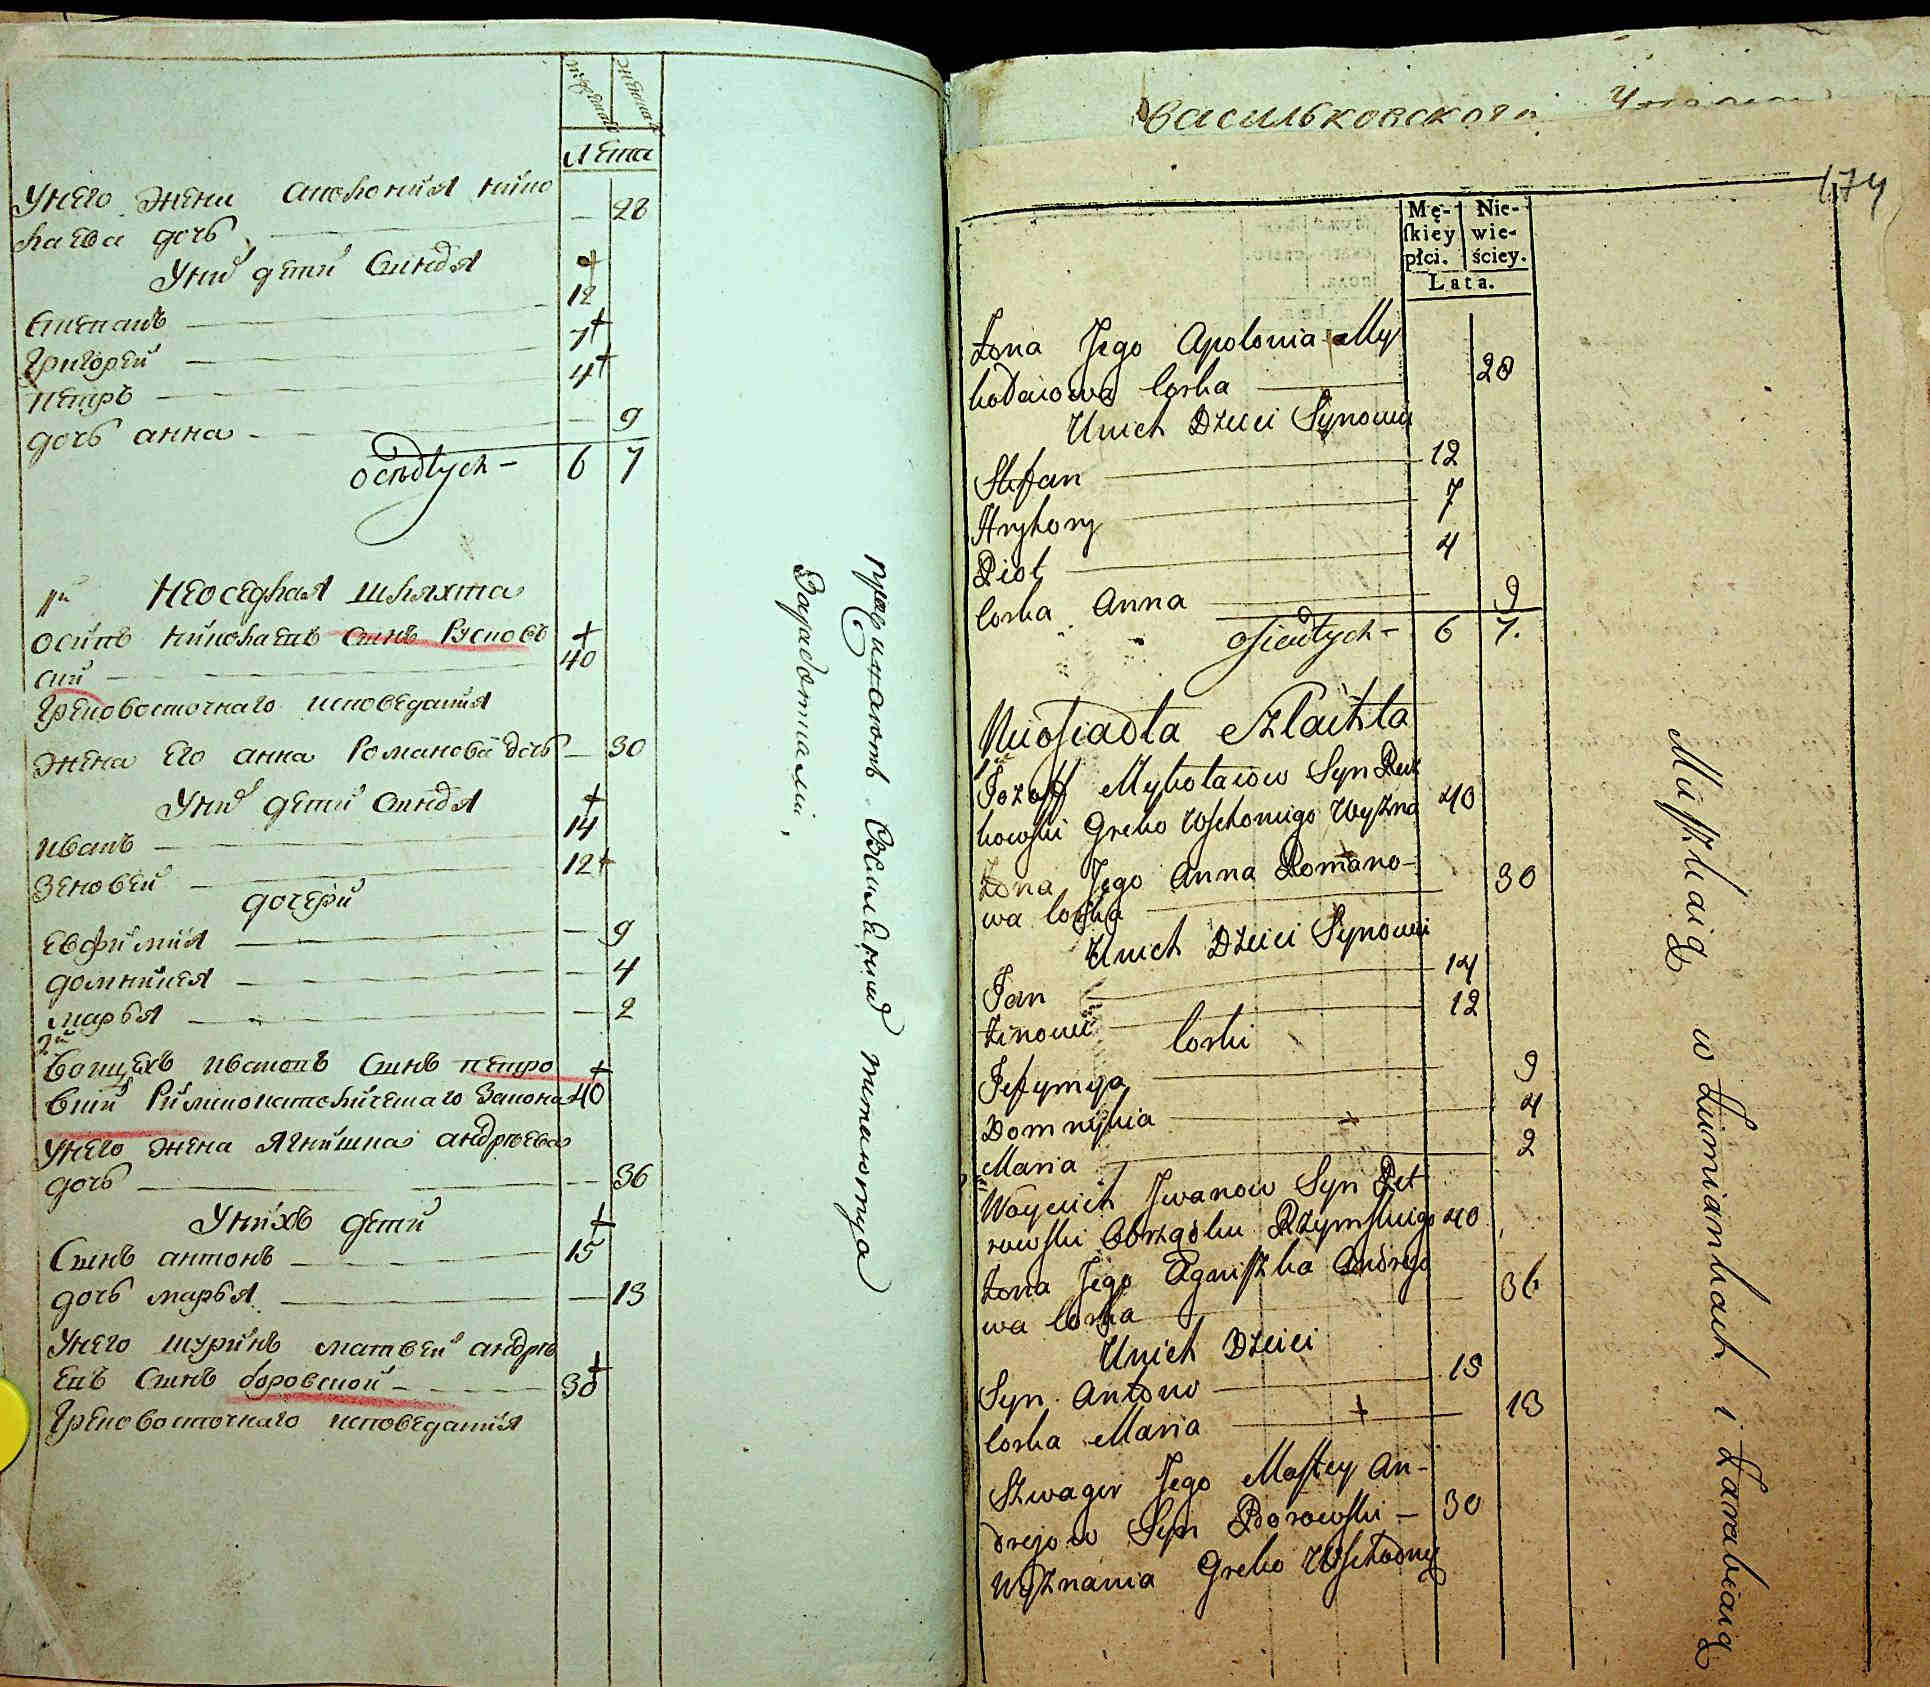 мужеска женска
лета
У него жена аполония нико
лаева дочь — 28
У них дети синовя
Степанъ 12
Григорей 7
петръ 4
дочь анна — 9
осiadłych — 6 7
1й Неоседлая шляхта
осипъ николаевъ синъ Руснов
ский 40
Грековосточнаго исповедания
жена его анна Романова дочь — 30
У них дети синовя
иванъ 14
Зеновей 12
дочери
евфимия — 9
домникия — 4
марья — 2
2й
Войцехъ ивановъ синъ петро
вский Римнокатолическаго Закона 40
У него жена Ягнишка андреева
дочь — 36
У нихъ дети
Синъ антонъ 15
дочь марья — 13
У него шуринъ матвей андре
евъ синъ боровской 30
Грековосточнаго исповедания
питаютца
Заработками,
Васильковского
174
Mę-
ſkiey
płci.
Nie-
wie-
ściey.
Lata.
Żona Jego Apolonia My
kołaiowa Corka 28
U nich Dzieci Synowie
Stefan 12
Hryhory 7
Piot 4
Corka Anna 9
osiadłych — 6 7.
Nieosiadła Szlachta
1й
Jozeff Mykołaiow Syn Rus
nowski Greko Wschoniego Wyzna 40
Żona Jego Anna Romano-
wa Corka 30
U nich Dzieci Synowie
Jan 14
Zinowi 12
Corki
Jefymya 9
Domnykia 4
Maria 2
Woyciech Jwanow Syn Pet
rowski Obrządku Rzymskiego 40
Żona Jego Agniszka Andrejo
wa Corka 36
U nich Dzieci
Syn Antoni 15
Corka Maria 13
Szwagier Jego Mattey An-
drejow Syn Borowski — 30
Wyznania Greko Wschodny
Mieszkaią w Zumiankach i Zarabiaią